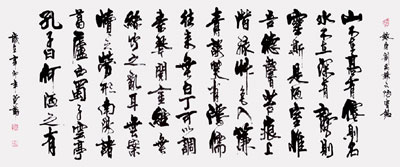 錄唐劉禹錫之陋室銘
山不在高有僊則名
水不在深有龍則
靈斯是陋室惟
吾德馨苔痕上
階綠草色入簾
青談笑有鴻儒
往來無白丁可以調
素琴閱金經無
絲竹之亂耳無案
牘之勞形南陽諸
葛廬西蜀子雲亭
孔子曰何陋之有